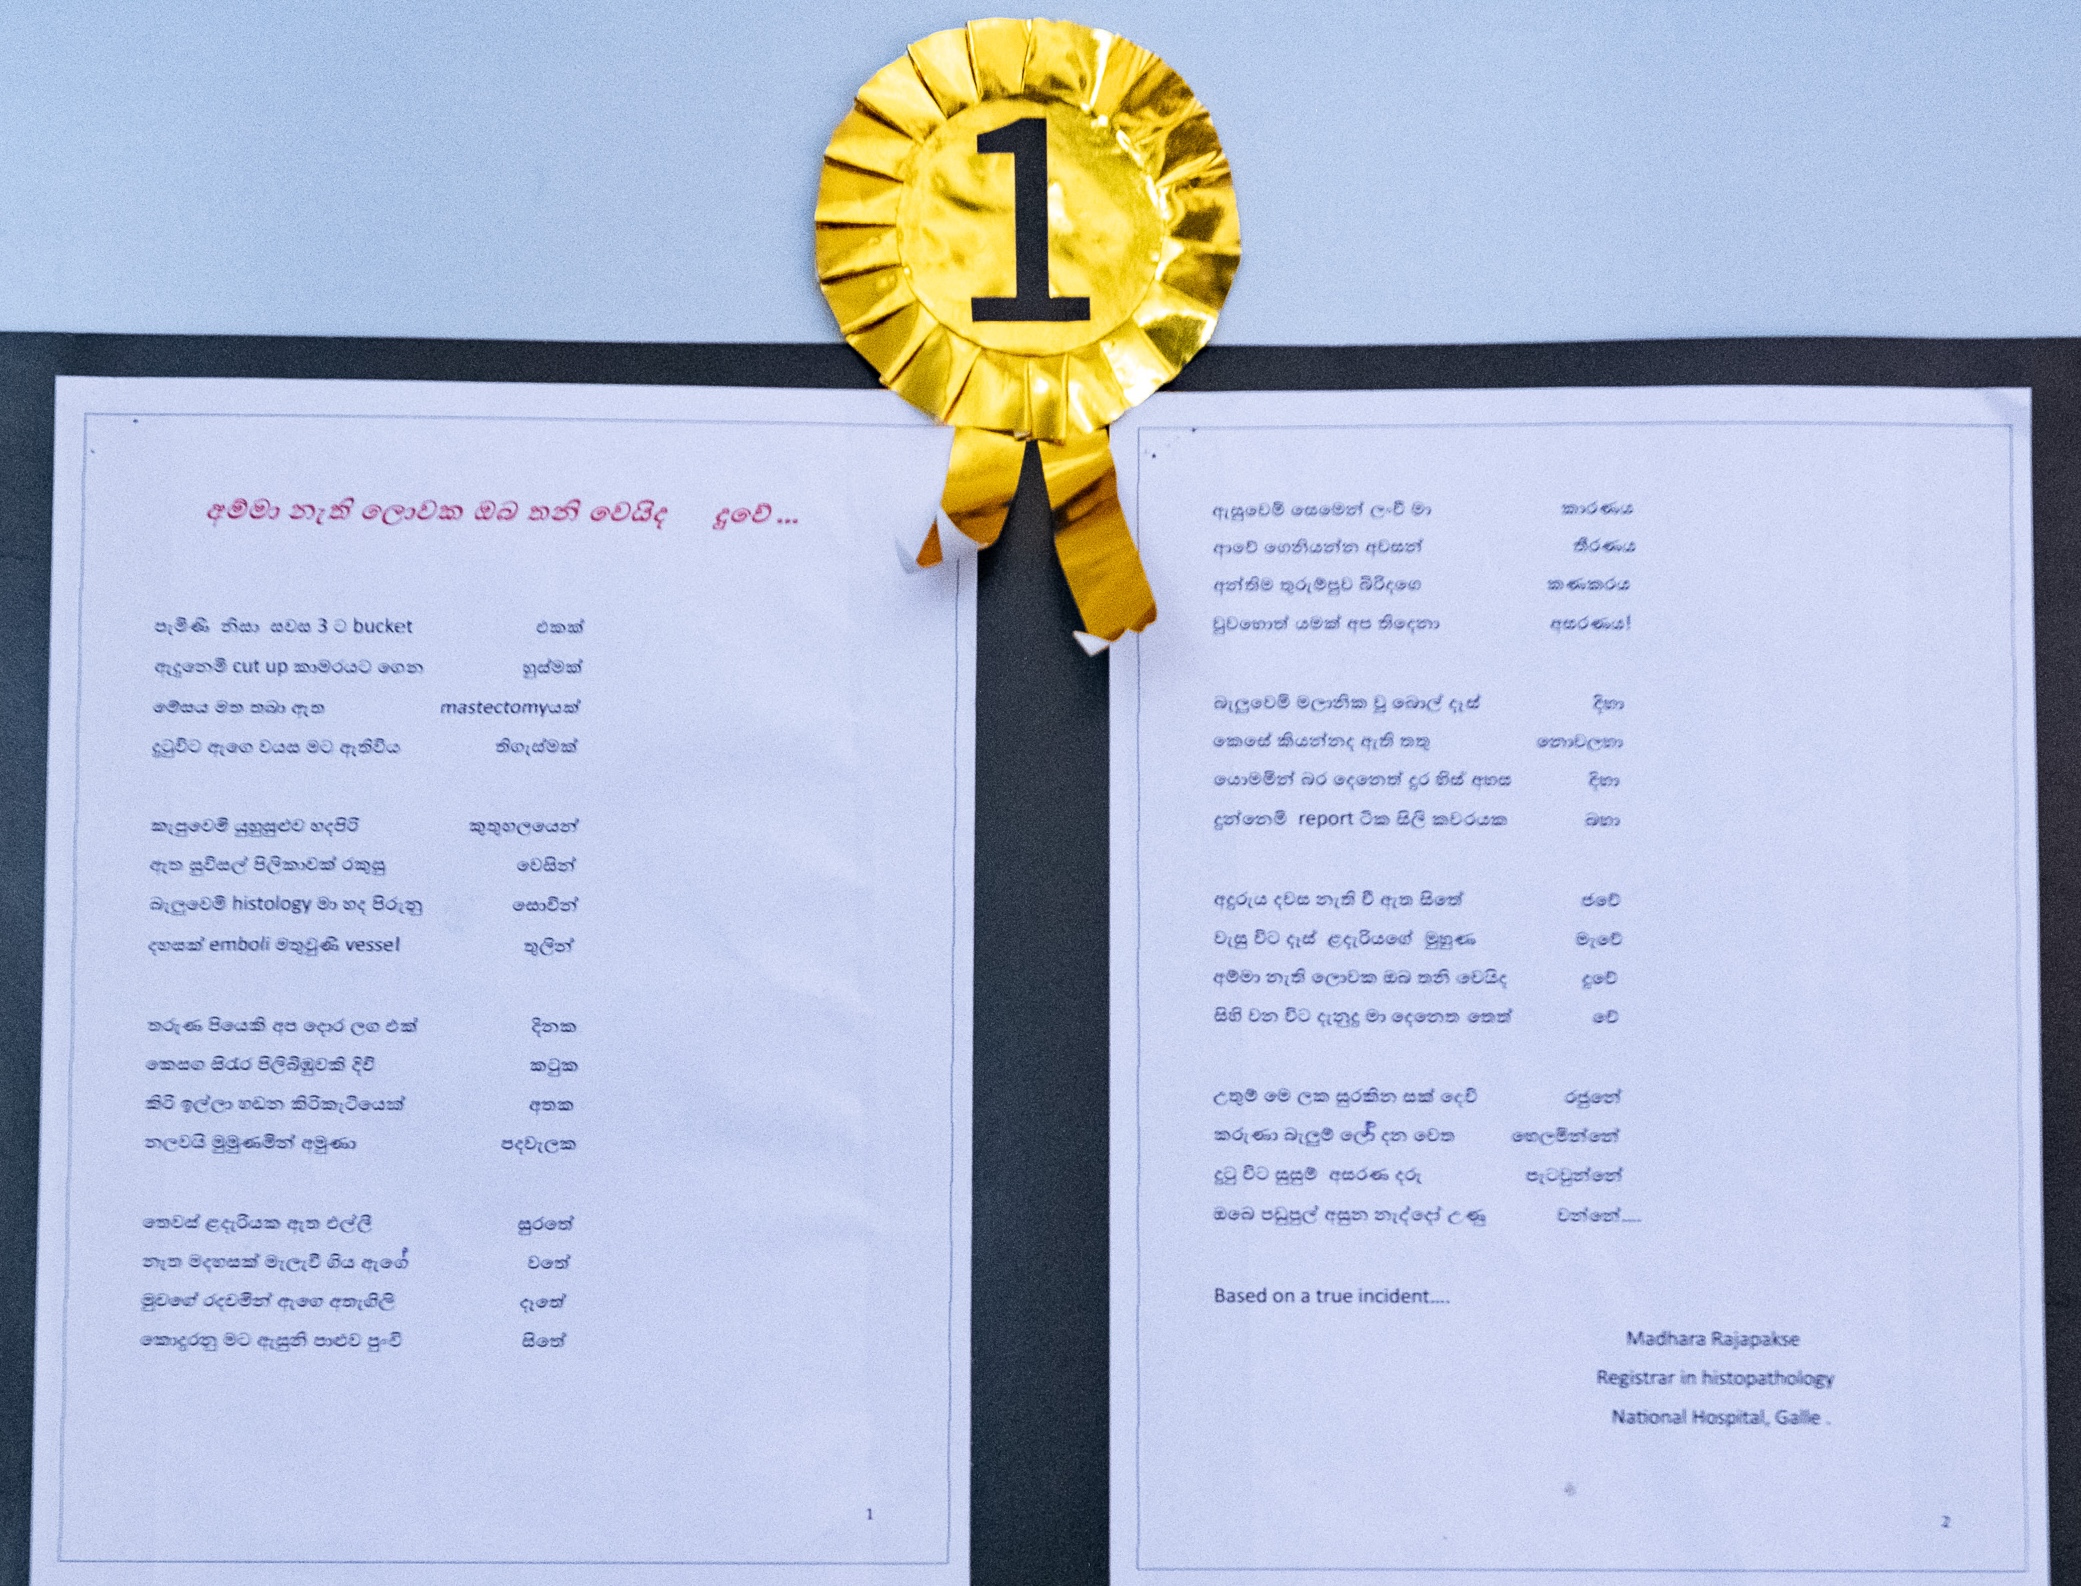 1
අම්මා නැති ලොවක ඔබ තනි වෙයිද දුවේ...
පැමිණි නිසා සවස 3 ට bucket එකක්
ඇදුනෙමි cut up කාමරයට ගෙන හුස්මක්
මේසය මත තබා ඇත mastectomyයක්
දුටුවිට ඇගෙ වයස මට ඇතිවිය තිගැස්මක්
කැපුවෙමි යුහුසුළුව හදපිරි කුතුහලයෙන්
ඇත සුවිසල් පිලිකාවක් රකුසු වෙසින්
බැලුවෙමි histology මා හද පිරුනු සොවින්
දහසක් emboli මතුවුණි vessel තුලින්
තරුණ පියෙකි අප දොර ලග එක් දිනක
කෙසග සිරැර පිලිබිඹුවකි දිවි කටුක
කිරි ඉල්ලා හඩන කිරිකැටියෙක් අතක
නලවයි මුමුණමින් අමුණා පදවැලක
තෙවස් ළදැරියක ඇත එල්ලී සුරතේ
නැත මදහසක් මැලැවී ගිය ඇගේ වතේ
මුවගේ රදවමින් ඇගෙ අතැගිලි දෑතේ
කොදුරනු මට ඇසුනි පාළුව පුංචි සිතේ
1
ඇසුවෙමි සෙමෙන් ලංවී මා කාරණය
ආවේ ගෙනියන්න අවසන් තීරණය
අන්තිම තුරුම්පුව බිරිදගෙ කණකරය
වුවහොත් යමක් අප තිදෙනා අසරණය!
බැලුවෙමි මලානික වූ බොල් දෑස් දිහා
කෙසේ කියන්නද ඇති තතු නොවලහා
යොමමින් බර දෙනෙත් දුර හිස් අහස දිහා
දුන්නෙමි report ටික සිලි කවරයක බහා
අදුරුය දවස නැති වී ඇත සිතේ ජවේ
වැසු විට දෑස් ළදැරියගේ මුහුණ මැවේ
අම්මා නැති ලොවක ඔබ තනි වෙයිද දුවේ
සිහි වන විට දැනුදු මා දෙනෙත තෙත් වේ
උතුම් මෙ ලක සුරකින සක් දෙවි රජුනේ
කරුණා බැලුම් ලෝ දන වෙත හෙලමින්නේ
දුටු විට සුසුම් අසරණ දරු පැටවුන්නේ
ඔබෙ පඩුපුල් අසුන නැද්දෝ උණු වන්නේ....
Based on a true incident....
Madhara Rajapakse
Registrar in histopathology
National Hospital, Galle .
2